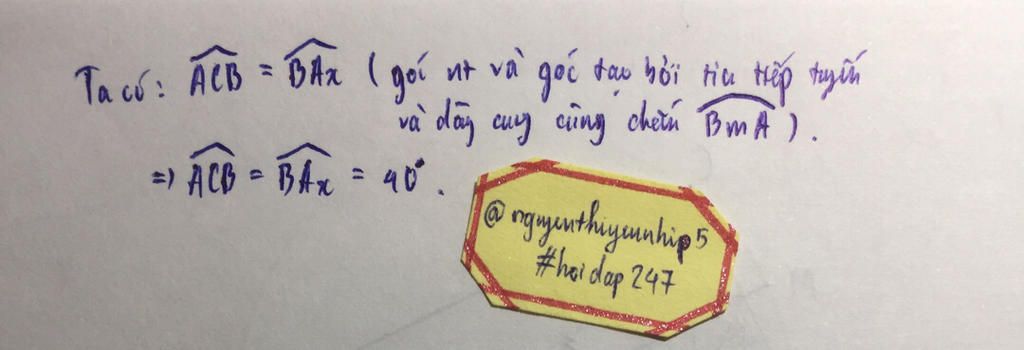 Ta có: ACB = BAx (góc nt và góc tạo bởi tia tiếp tuyến
và dây cung cùng chắn BmA).
=> ACB = BAx = 40°.
@nguyenthiyennhip5
#hoidap247